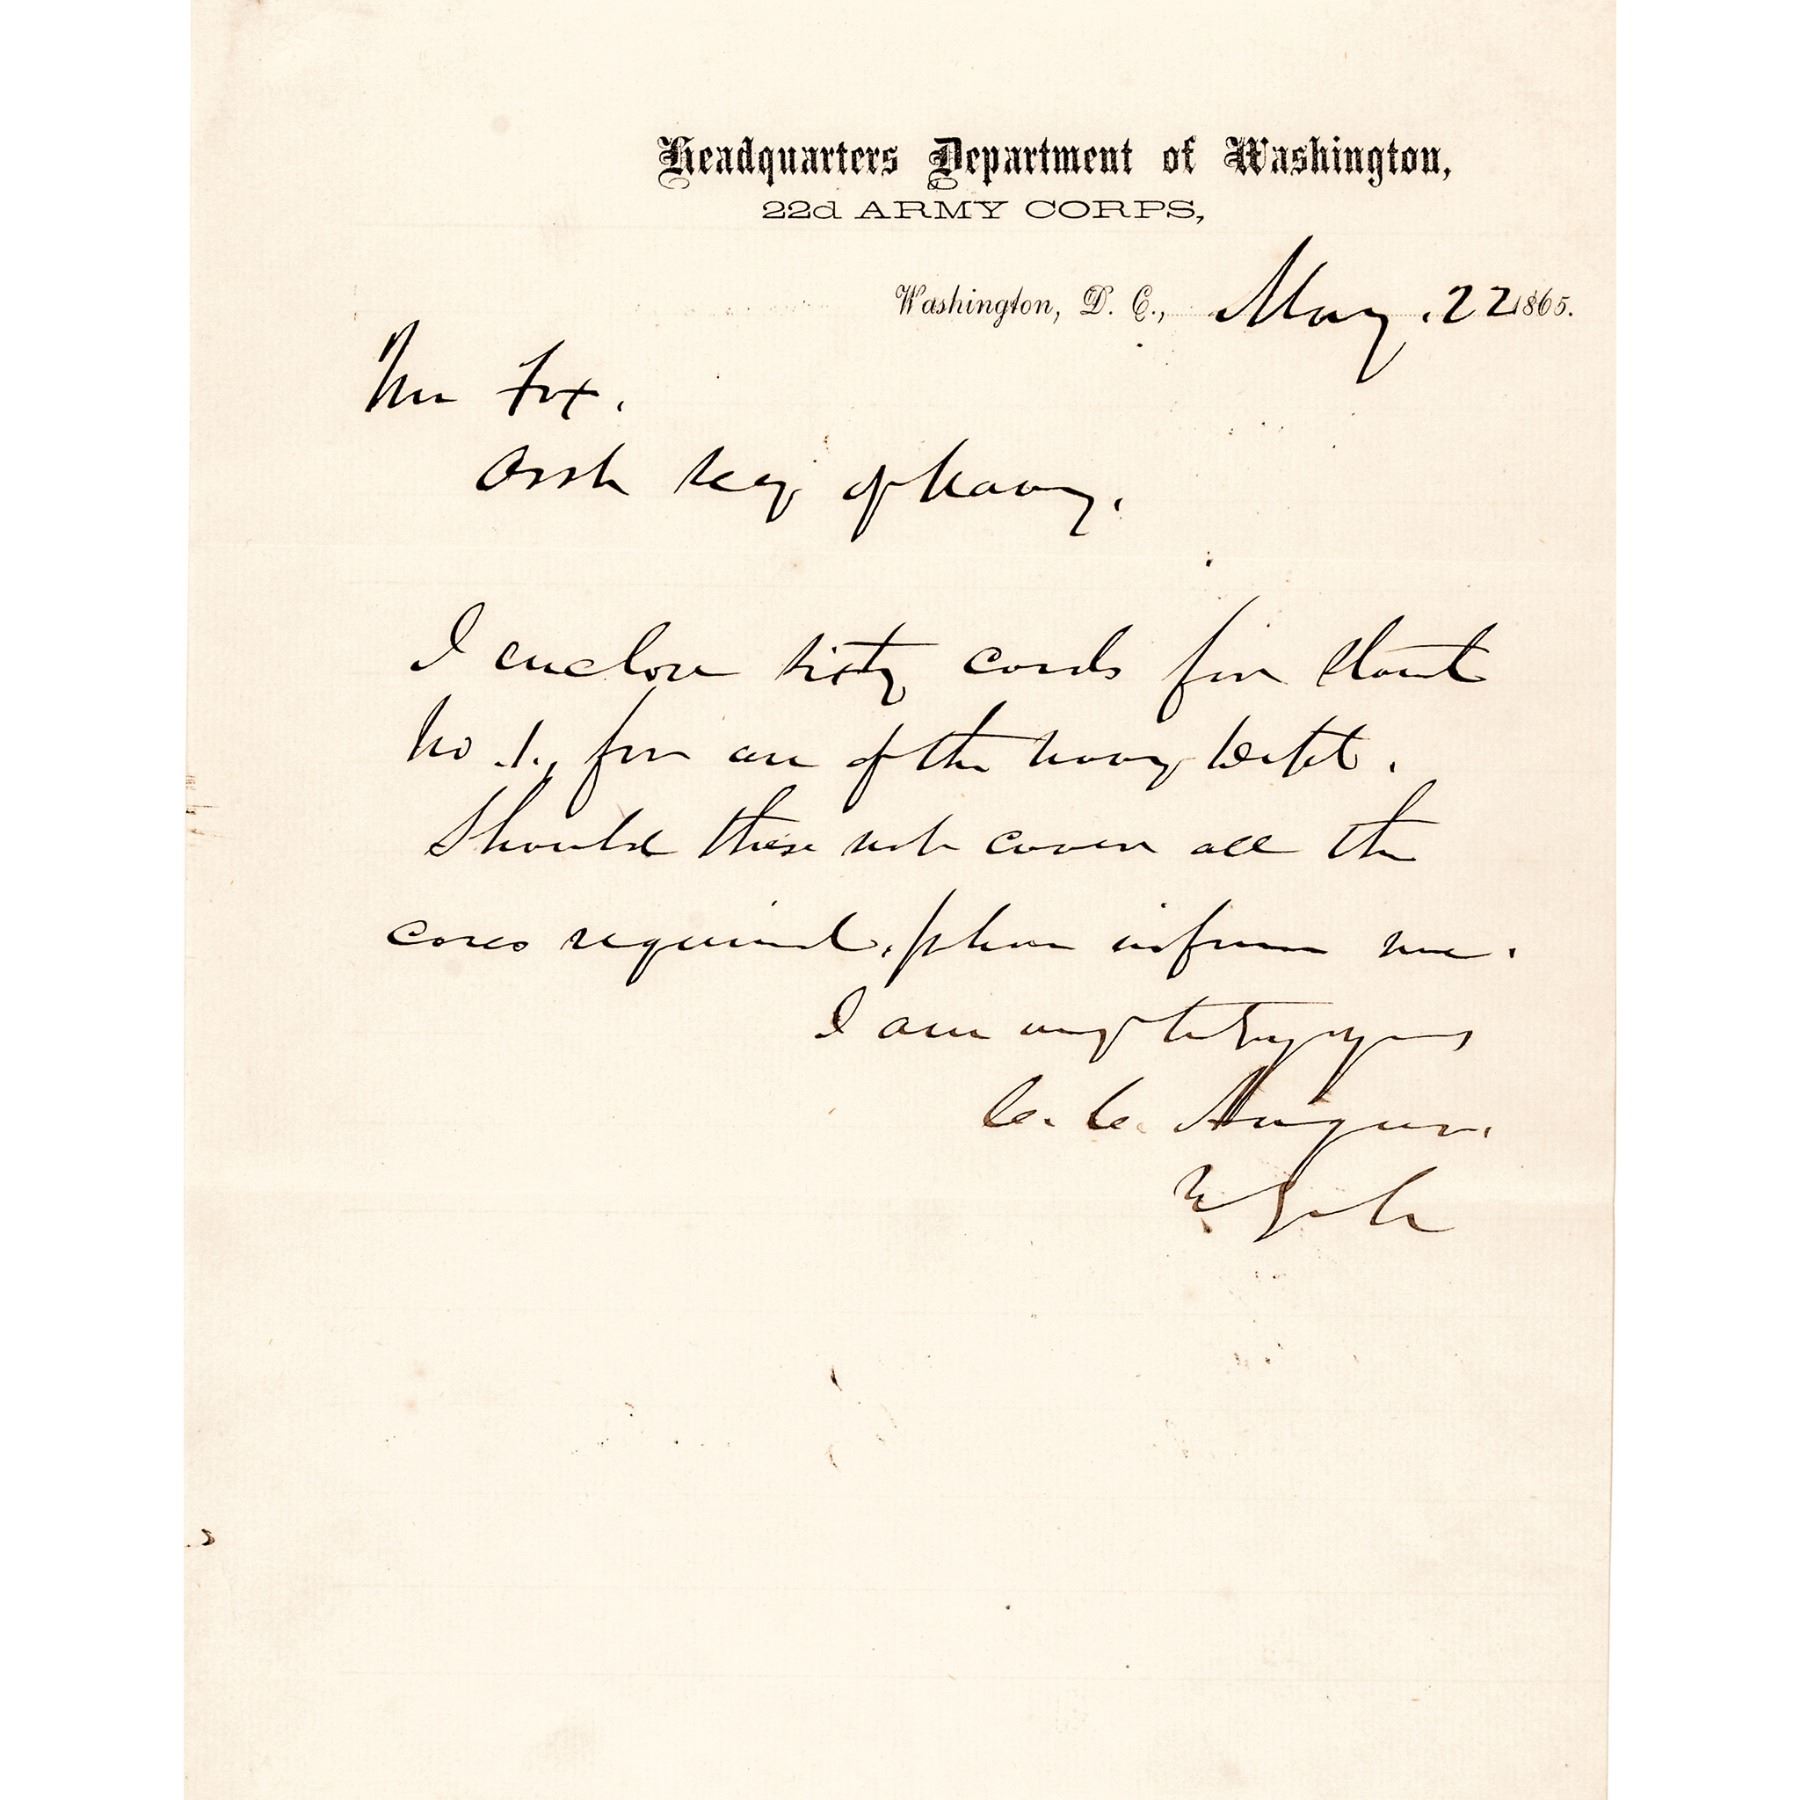 Headquarters Department of Washington,
22d ARMY CORPS,
Washington, D. C., May. 22 1865.
Mr Fox.
Asst Secy of Navy.
I enclose sixty cards for Stand
No. 1., for use of the Navy Dept.
Should these not cover all the
cases required, please inform me.
I am very truly yours
C. C. Augur.